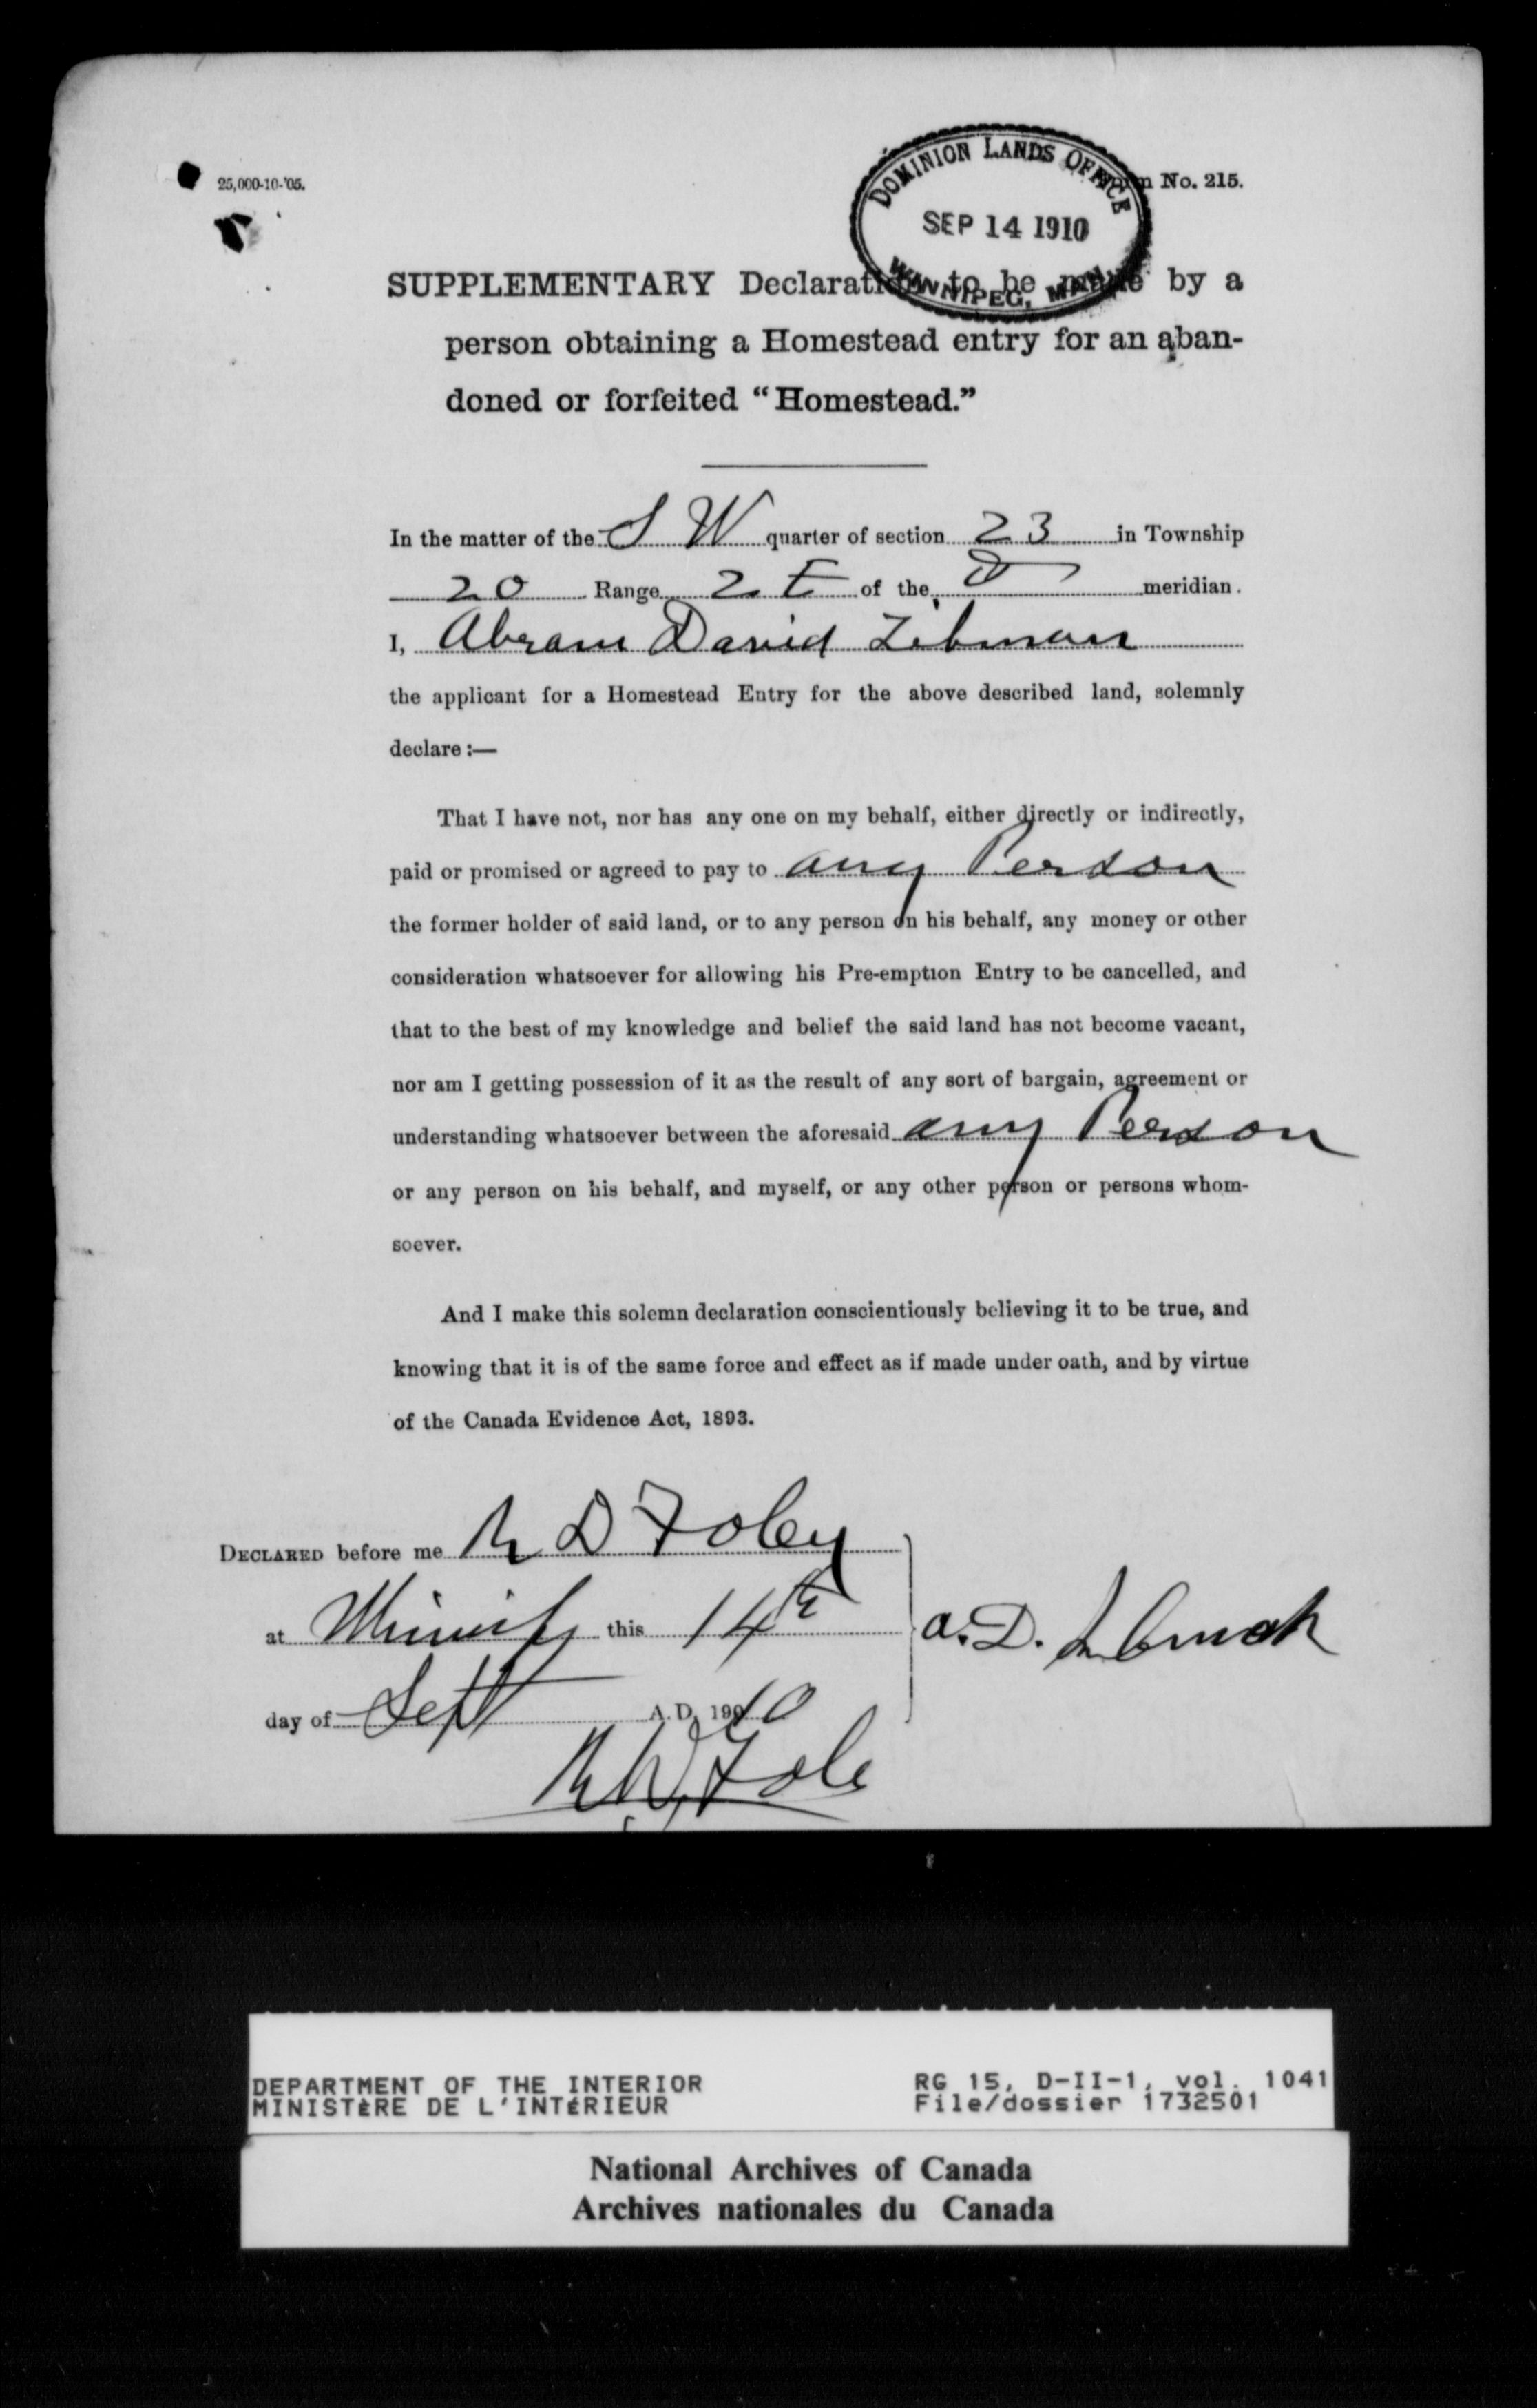 25,000-10-'05.
No. 215.
DOMINION LANDS OFFICE
SEP 14 1910
WINNIPEG, MAN
SUPPLEMENTARY Declaration to be made by a
person obtaining a Homestead entry for an aban-
doned or forfeited "Homestead."
In the matter of the S W quarter of section 23 in Township
20 Range 2 E of the meridian.
I, Abram David Libman
the applicant for a Homestead Entry for the above described land, solemnly
declare :—
That I have not, nor has any one on my behalf, either directly or indirectly,
paid or promised or agreed to pay to any Person
the former holder of said land, or to any person on his behalf, any money or other
consideration whatsoever for allowing his Pre-emption Entry to be cancelled, and
that to the best of my knowledge and belief the said land has not become vacant,
nor am I getting possession of it as the result of any sort of bargain, agreement or
understanding whatsoever between the aforesaid any Person
or any person on his behalf, and myself, or any other person or persons whom-
soever.
And I make this solemn declaration conscientiously believing it to be true, and
knowing that it is of the same force and effect as if made under oath, and by virtue
of the Canada Evidence Act, 1893.
DECLARED before me Foley
at this 14th
A. D.
day of Sept A. D. 1910
DEPARTMENT OF THE INTERIOR
MINISTÈRE DE L'INTÉRIEUR
RG 15, D-II-1, vol. 1041
File/dossier 1732501
National Archives of Canada
Archives nationales du Canada